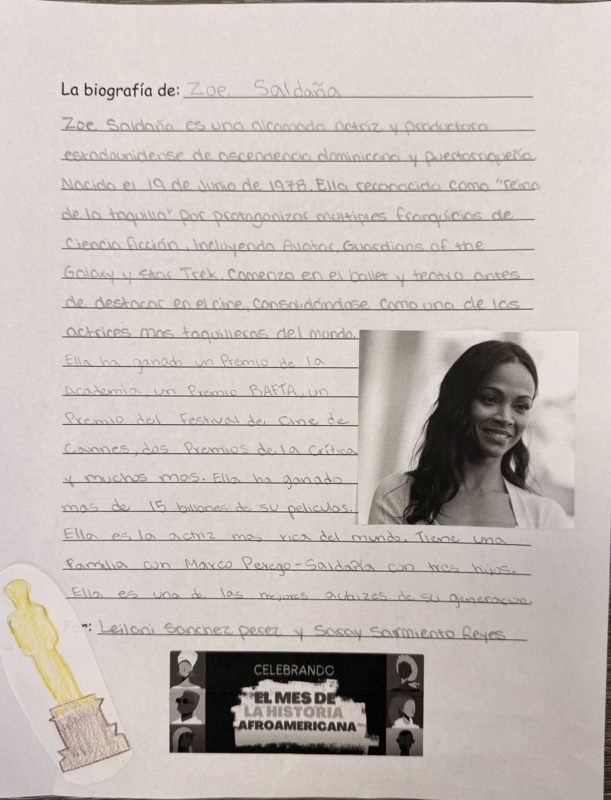 La biografía de: Zoe Saldaña
Zoe Saldaña es una alcamada actriz y productora
estadounidense de ascendencia dominicana y puertorriqueña
Nacida el 19 de Junio de 1978. Ella reconocida como "reina
de la taquilla" por protagonizar multiples franquicias de
Ciencia ficción, Incluyendo Avatar, Guardians of the
Galaxy y Star Trek. Comenzo en el ballet y teatro antes
de destacar en el cine, consolidándose como una de las
actrices mas taquilleras del mundo.
Ella ha ganado un Premio de la
Academia, un Premio BAFTA, un
Premio del Festival de Cine de
Cannes, dos Premios de la Crítica
y muchos mas. Ella ha ganado
mas de 15 billones de su peliculas.
Ella es la actriz mas rica del mundo. Tiene una
familia con Marco Perego-Saldaña con tres hijos.
Ella es una de las mejores actrizes de su generacion
Leilani Sanchez perez y Saray Sarmiento Reyes
CELEBRANDO
EL MES DE
LA HISTORIA
AFROAMERICANA